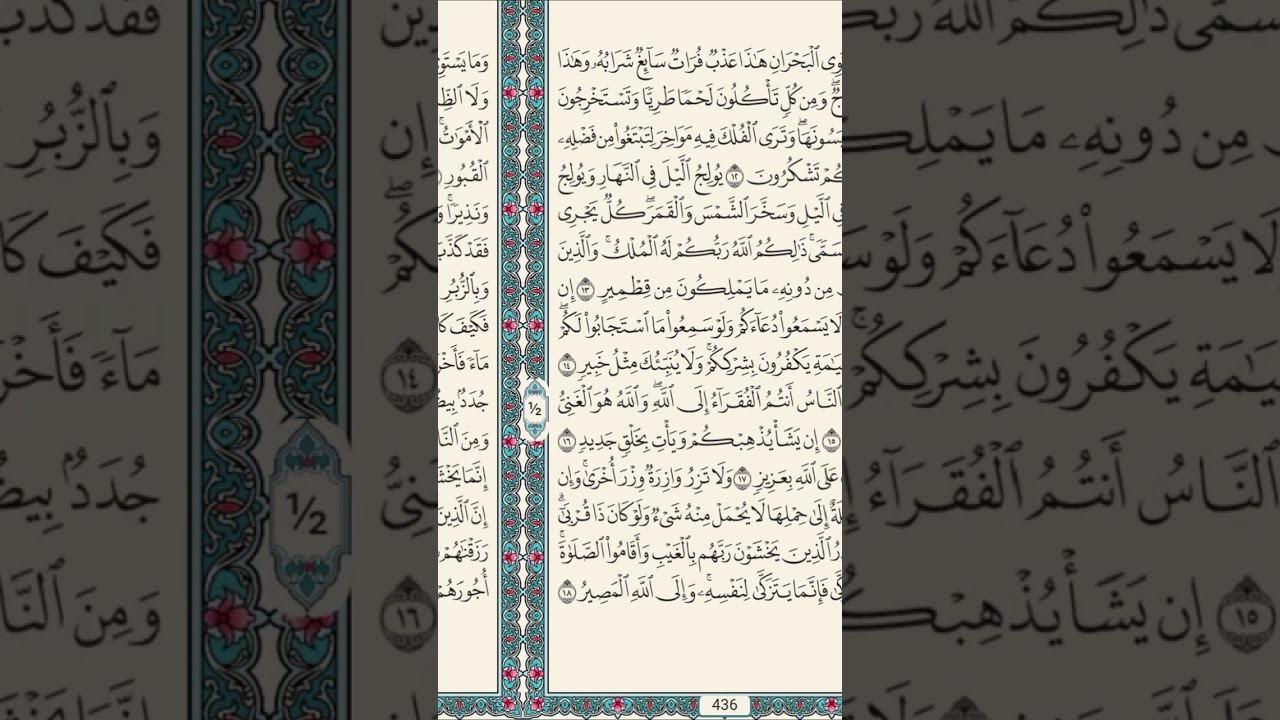 ٱلۡبَحۡرَانِ هَٰذَا عَذۡبٞ فُرَاتٞ سَآئِغٞ شَرَابُهُۥ وَهَٰذَا
وَمِن كُلّٖ تَأۡكُلُونَ لَحۡمٗا طَرِيّٗا وَتَسۡتَخۡرِجُونَ
وَتَرَى ٱلۡفُلۡكَ فِيهِ مَوَاخِرَ لِتَبۡتَغُواْ مِن فَضۡلِهِۦ
تَشۡكُرُونَ ١٢ يُولِجُ ٱلَّيۡلَ فِي ٱلنَّهَارِ وَيُولِجُ
ٱلَّيۡلِ وَسَخَّرَ ٱلشَّمۡسَ وَٱلۡقَمَرَۖ كُلّٞ يَجۡرِي
ذَٰلِكُمُ ٱللَّهُ رَبُّكُمۡ لَهُ ٱلۡمُلۡكُۚ وَٱلَّذِينَ
مِن دُونِهِۦ مَا يَمۡلِكُونَ مِن قِطۡمِيرٍ ١٣ إِن
لَا يَسۡمَعُواْ دُعَآءَكُمۡ وَلَوۡ سَمِعُواْ مَا ٱسۡتَجَابُواْ لَكُمۡۖ
يَكۡفُرُونَ بِشِرۡكِكُمۡۚ وَلَا يُنَبِّئُكَ مِثۡلُ خَبِيرٖ ١٤
ٱلنَّاسُ أَنتُمُ ٱلۡفُقَرَآءُ إِلَى ٱللَّهِۖ وَٱللَّهُ هُوَ ٱلۡغَنِيُّ
١٥ إِن يَشَأۡ يُذۡهِبۡكُمۡ وَيَأۡتِ بِخَلۡقٖ جَدِيدٖ ١٦
عَلَى ٱللَّهِ بِعَزِيزٖ ١٧ وَلَا تَزِرُ وَازِرَةٞ وِزۡرَ أُخۡرَىٰۚ وَإِن
إِلَىٰ حِمۡلِهَا لَا يُحۡمَلۡ مِنۡهُ شَيۡءٞ وَلَوۡ كَانَ ذَا قُرۡبَىٰٓۗ
ٱلَّذِينَ يَخۡشَوۡنَ رَبَّهُم بِٱلۡغَيۡبِ وَأَقَامُواْ ٱلصَّلَوٰةَۚ
فَإِنَّمَا يَتَزَكَّىٰ لِنَفۡسِهِۦۚ وَإِلَى ٱللَّهِ ٱلۡمَصِيرُ ١٨
436
½
وَمَا
وَلَا
ٱلۡأَمۡوَٰتُۚ
ٱلۡقُبُورِ
وَنَذِيرٗاۚ
فَقَدۡ
وَبِٱلزُّبُرِ
فَكَيۡفَ
مَآءٗ
جُدَدُۢ
وَمِنَ
إِنَّمَا
إِنَّ ٱلَّذِينَ
رَزَقۡنَٰهُمۡ
أُجُورَهُمۡ